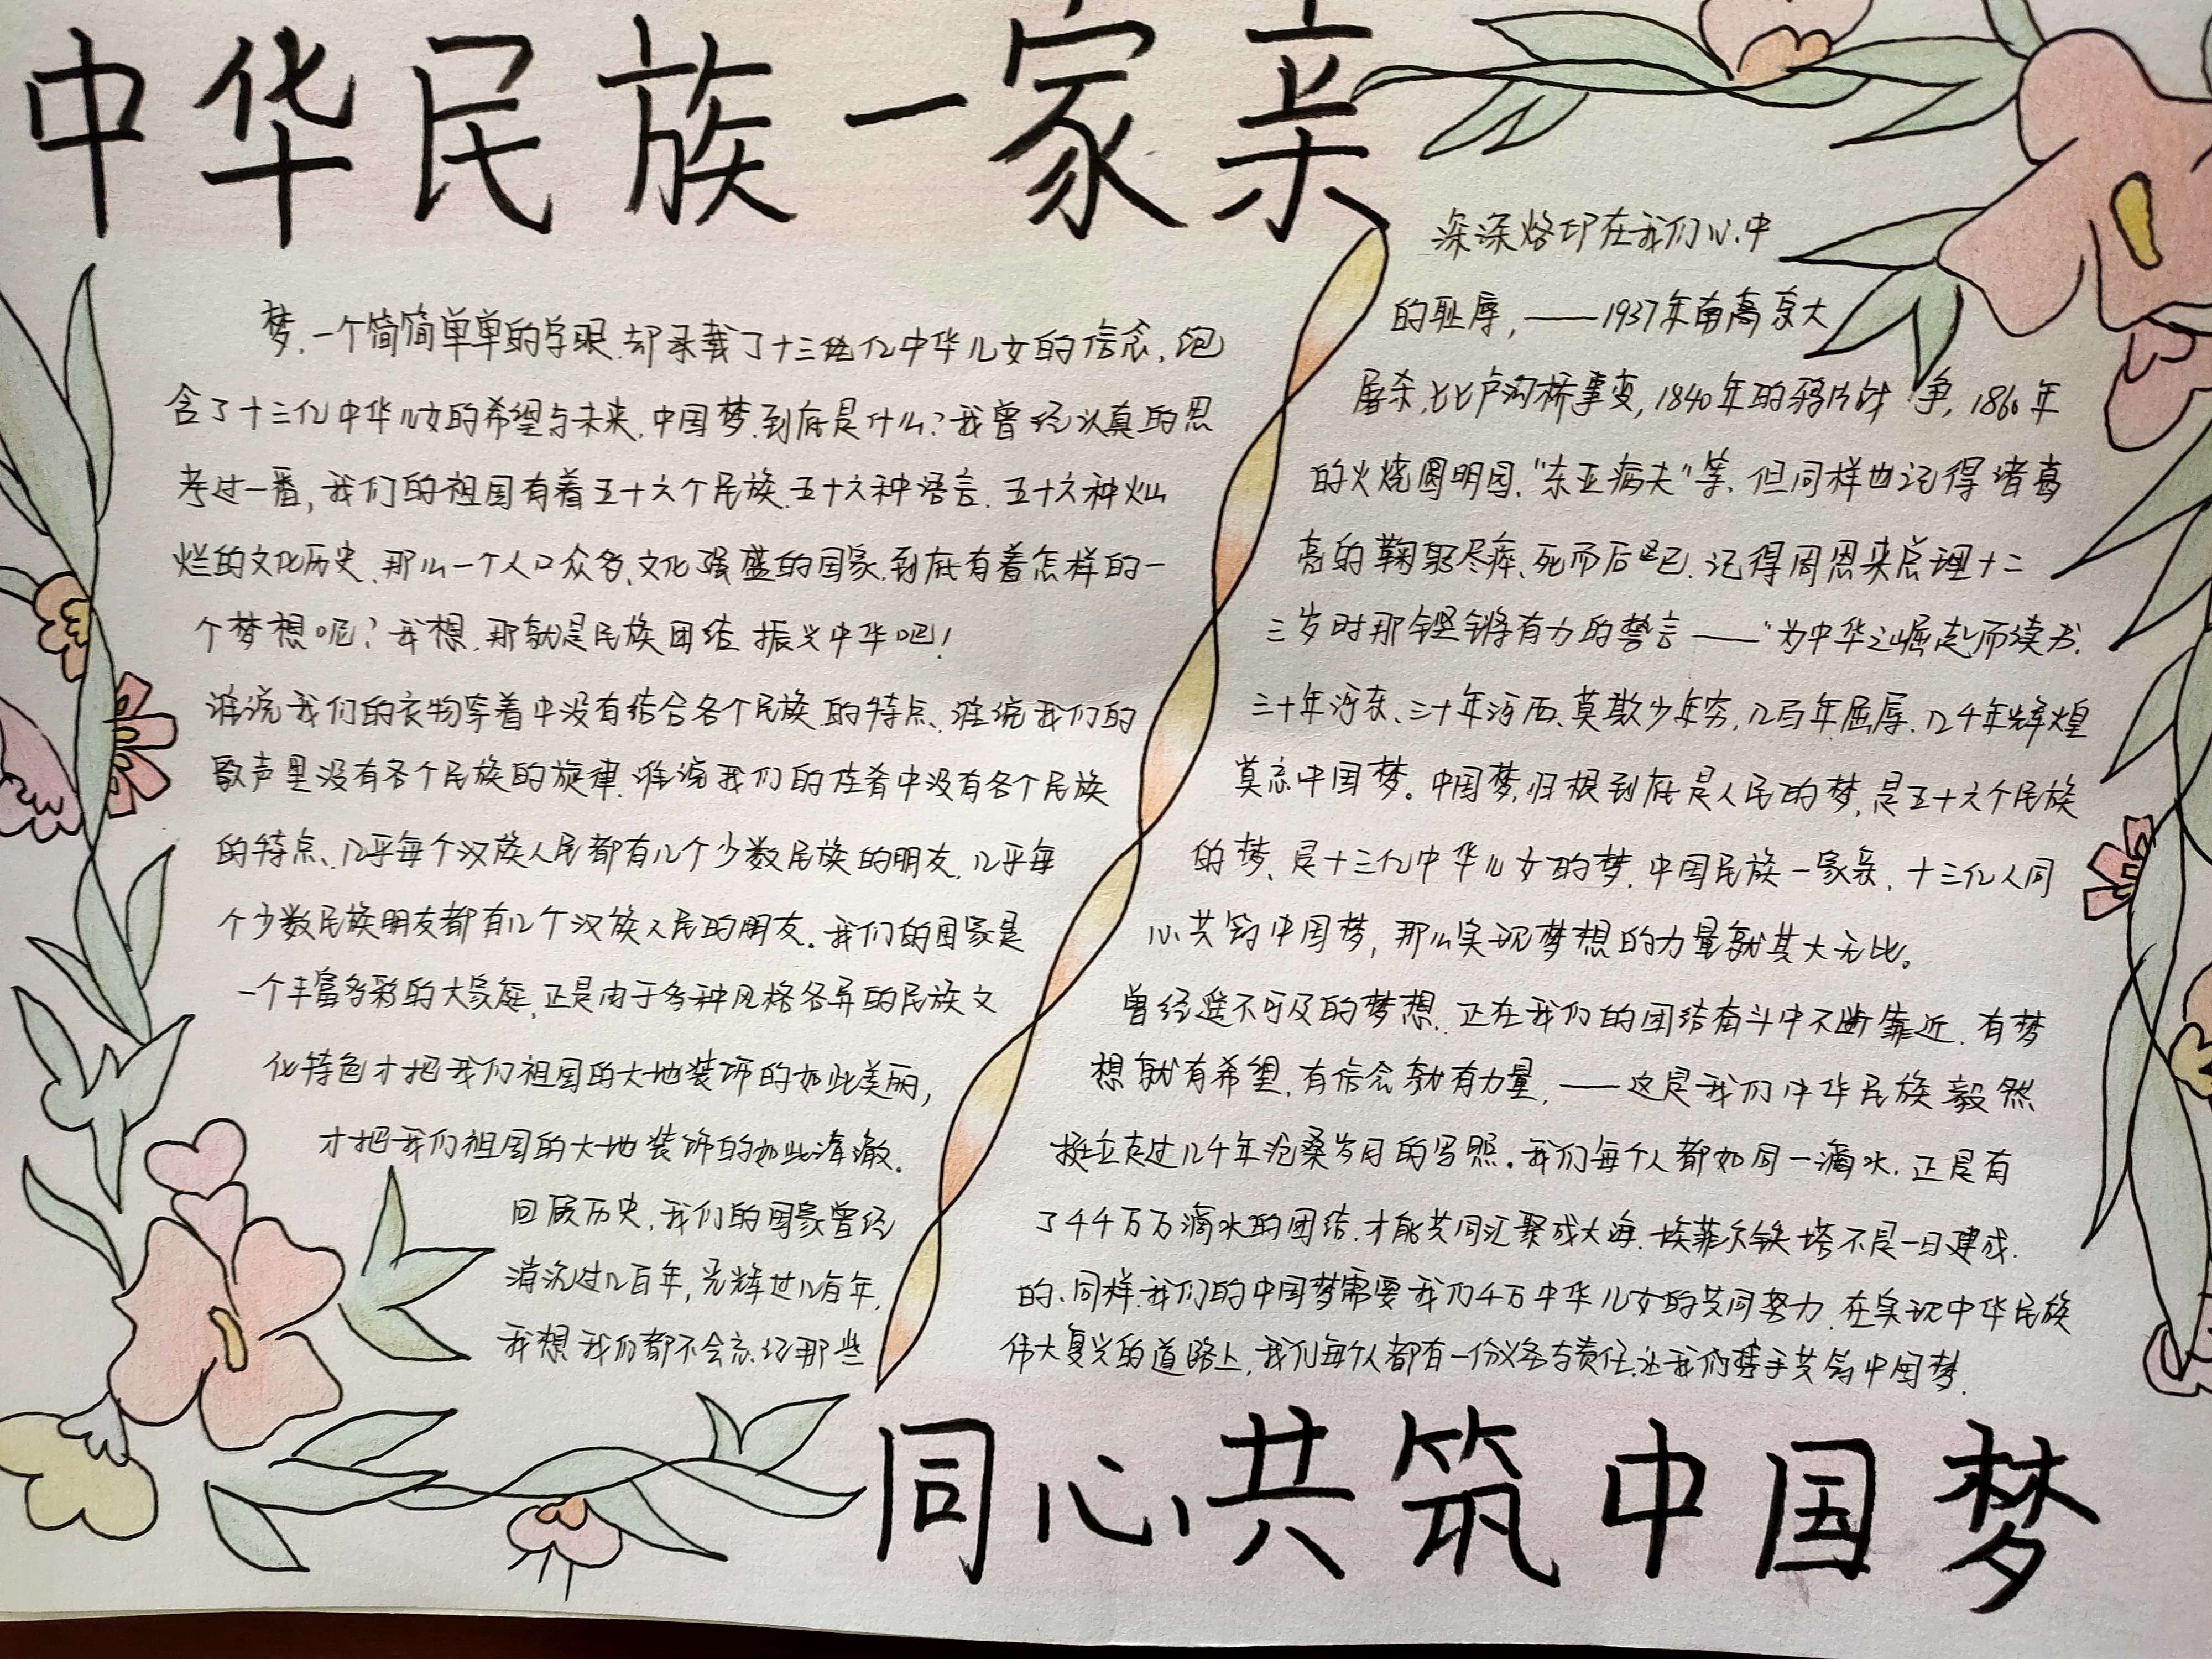 中华民族一家亲
梦,一个简简单单的字眼.却承载了十三亿中华儿女的信念,饱
含了十三亿中华儿女的希望与未来,中国梦,到底是什么?我曾经认真的思
考过一番,我们的祖国有着五十六个民族.五十六种语言.五十六种灿
烂的文化历史,那么一个人口众多、文化强盛的国家,到底有着怎样的一
个梦想呢?我想,那就是民族团结 振兴中华吧!
谁说我们的衣物穿着中没有结合各个民族的特点、谁说我们的
歌声里没有各个民族的旋律.谁说我们的佳肴中没有各个民族
的特点、几乎每个汉族人民都有几个少数民族的朋友,几乎每
个少数民族朋友都有几个汉族人民的朋友.我们的国家是
一个丰富多彩的大家庭,正是由于多种风格各异的民族文
化特色才把我们祖国的大地装饰的如此美丽,
才把我们祖国的大地装饰的如此清澈.
回顾历史,我们的国家曾经
消沉过几百年,光辉过几百年,
我想我们都不会忘记那些
深深烙印在我们心中
的耻辱,——1937年南京大
屠杀,七七卢沟桥事变,1840年的鸦片战争,1860年
的火烧圆明园,"东亚病夫"等,但同样也记得诸葛
亮的鞠躬尽瘁、死而后已.记得周恩来总理十二
三岁时那铿锵有力的誓言——"为中华之崛起而读书.
三十年河东、三十年河西、莫欺少年穷,几百年屈辱.几千年辉煌
莫忘中国梦。中国梦,归根到底是人民的梦,是五十六个民族
的梦、是十三亿中华儿女的梦.中国民族一家亲,十三亿人同
心共筑中国梦,那么实现梦想的力量就其大无比。
曾经遥不可及的梦想,正在我们的团结奋斗中不断靠近,有梦
想就有希望,有信念就有力量,——这是我们中华民族毅然
挺立走过几千年沧桑岁月的写照.我们每个人都如同一滴水,正是有
了千千万万滴水的团结,才能共同汇聚成大海.埃菲尔铁塔不是一日建成.
的、同样,我们的中国梦需要我们千万中华儿女的共同努力,在实现中华民族
伟大复兴的道路上,我们每个人都有一份义务与责任.让我们携手共筑中国梦.
同心共筑中国梦